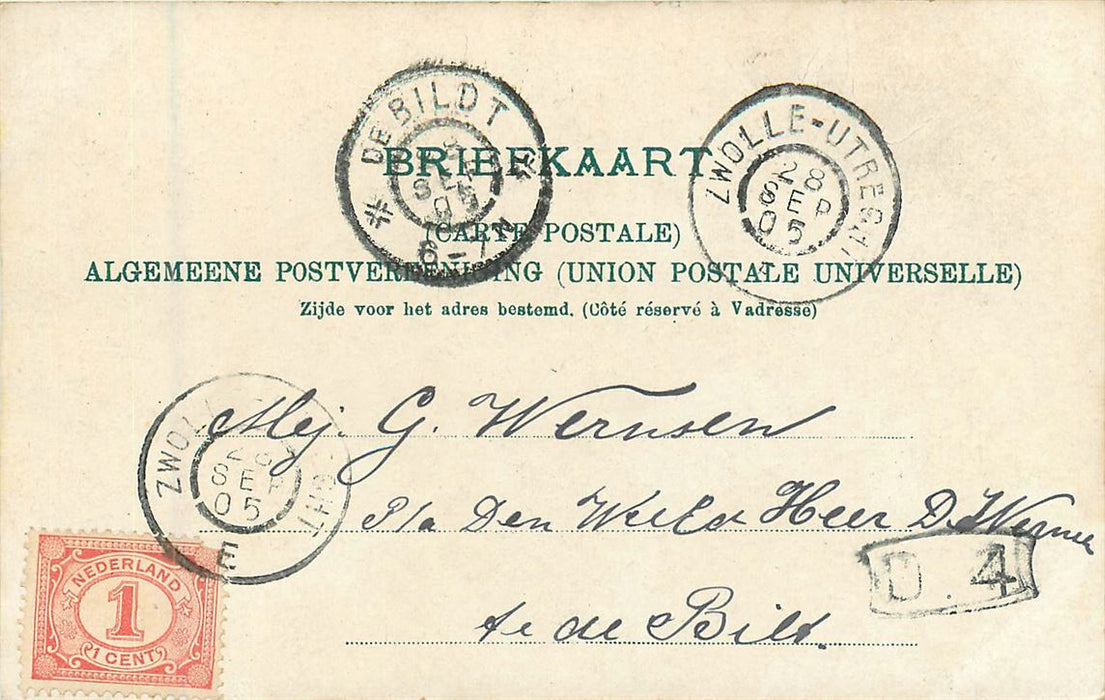 DE BILDT
SEP
05
6-7 N
ZWOLLE-UTRECHT
28
SEP
05
BRIEFKAART
(CARTE POSTALE)
ALGEMEENE POSTVEREENIGING (UNION POSTALE UNIVERSELLE)
Zijde voor het adres bestemd. (Côté réservé à Vadresse)
ZWOLL CHT
28
SEP
05
E
Mej. G. Wernsen
P/a Den Heer D. Wern
te de Bilt
D. 4
NEDERLAND
1
1 CENT